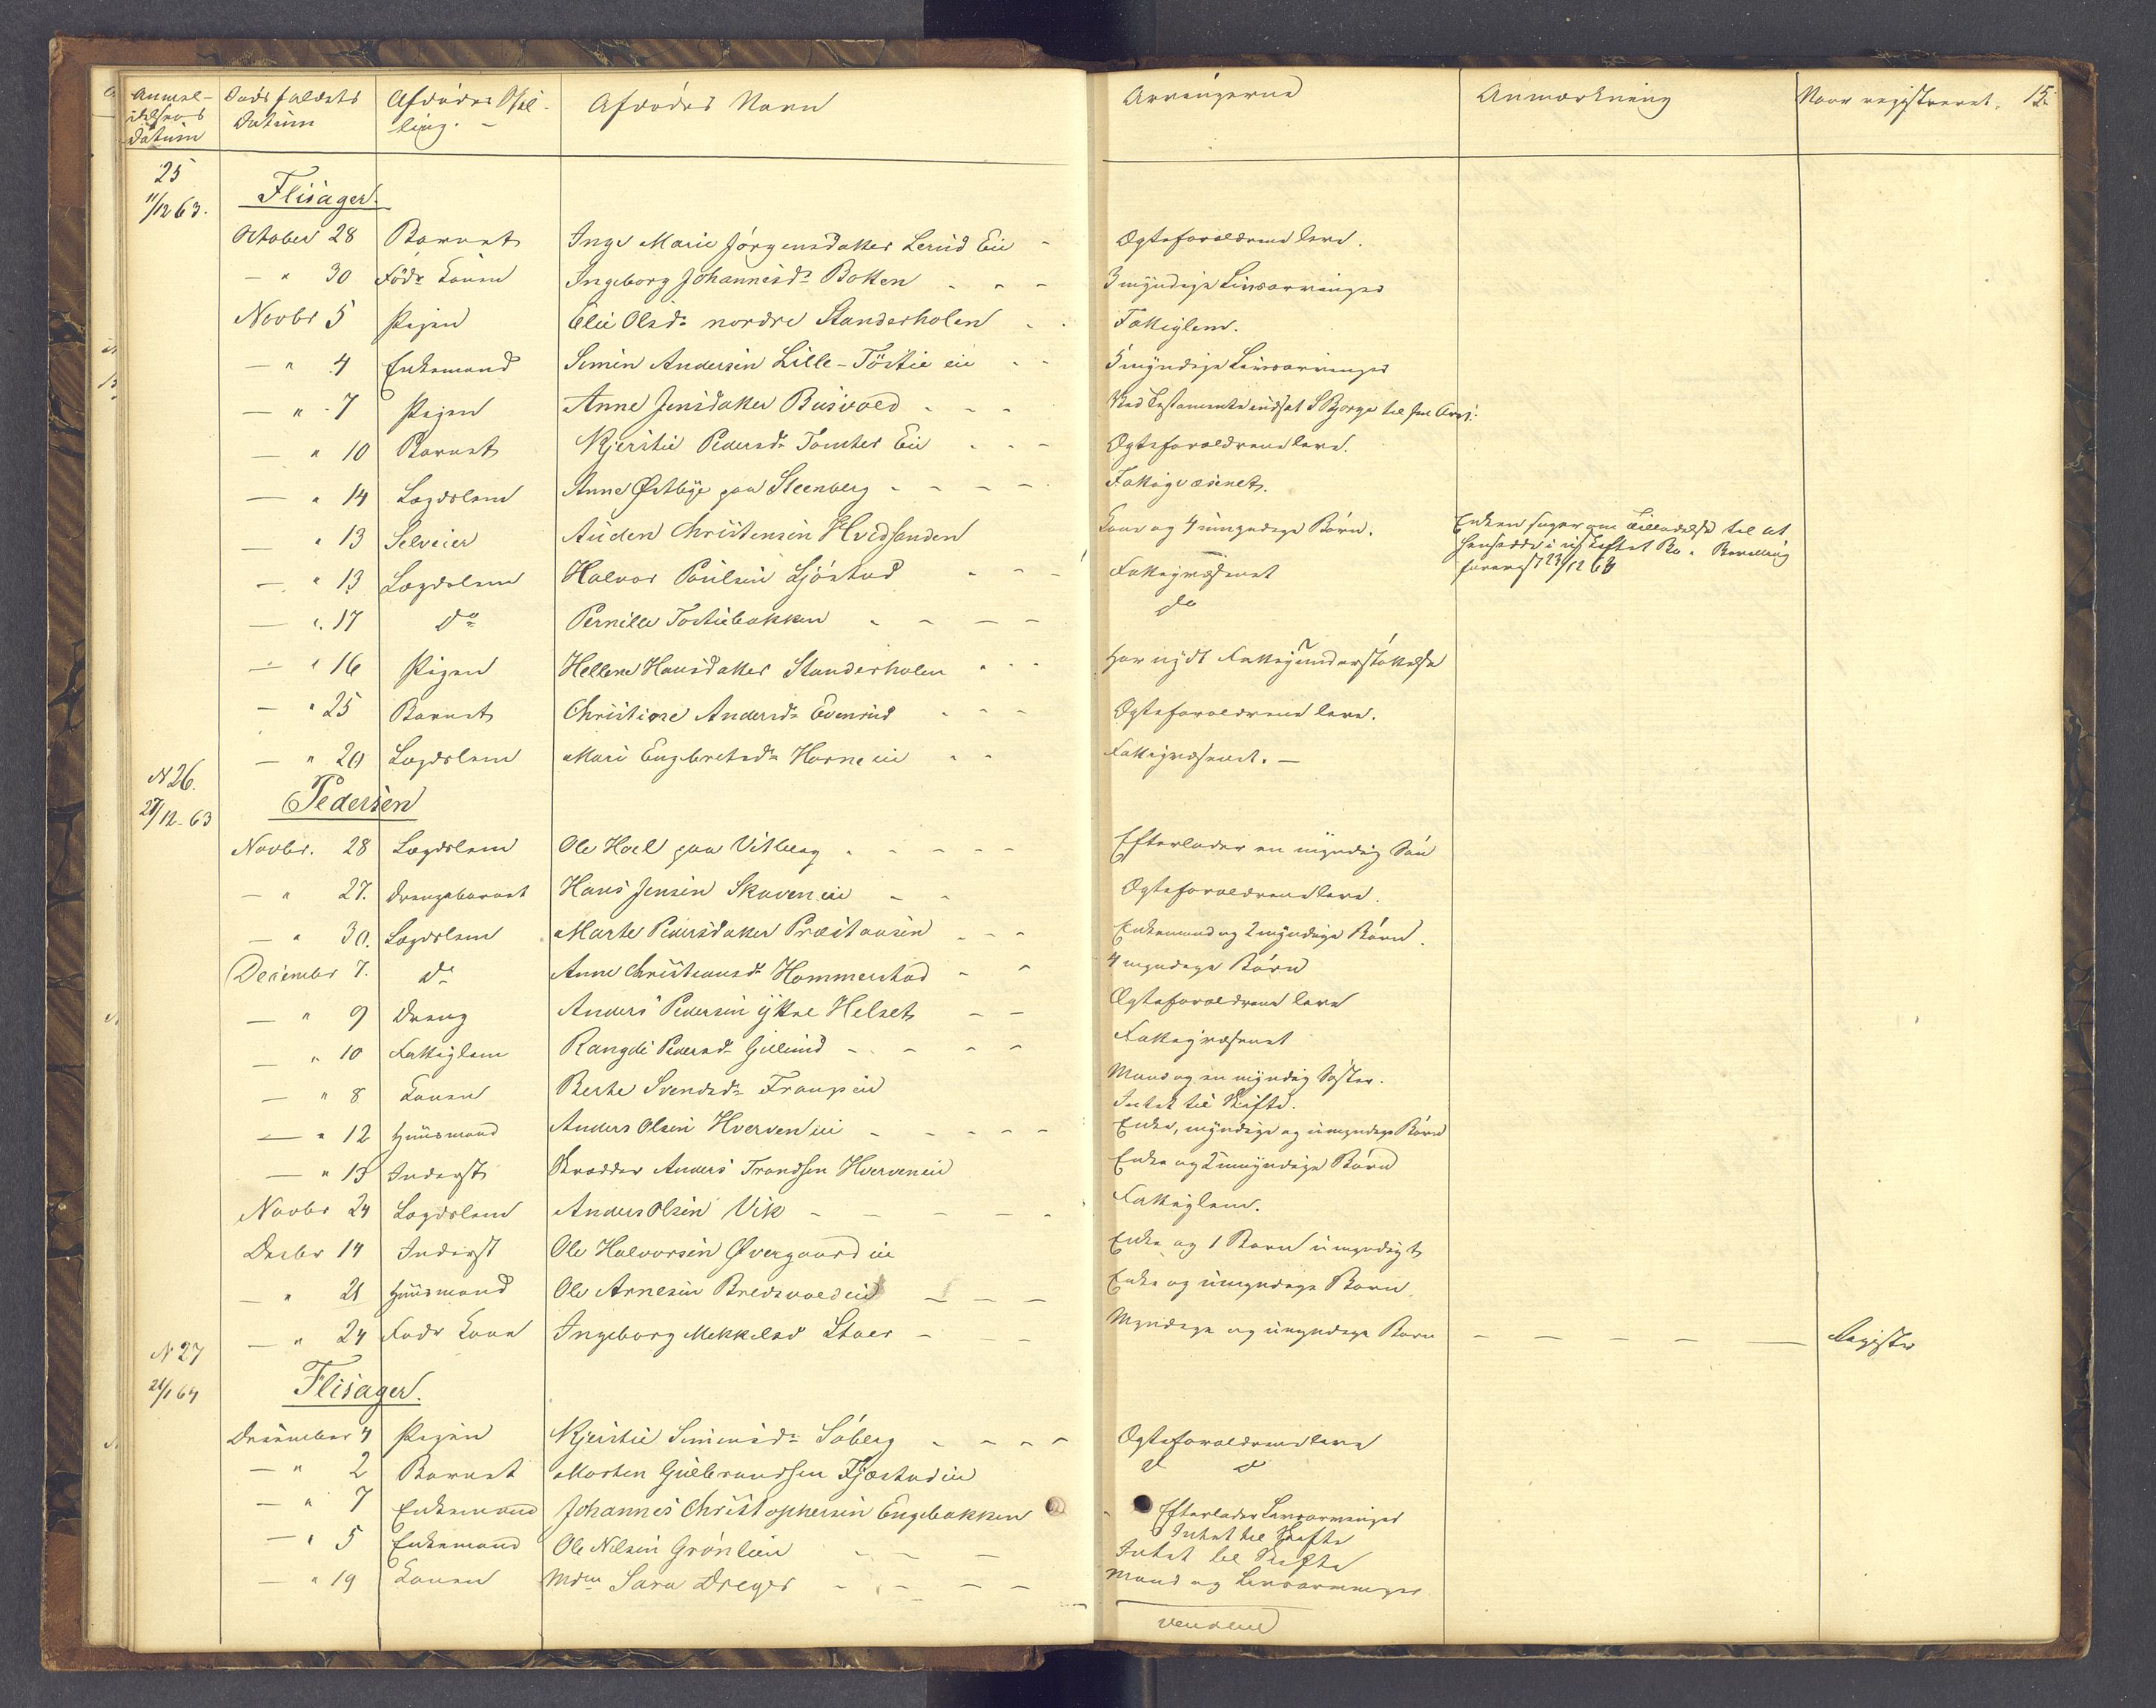 Anmeldelsens Datum Dødsfaldets Datum Afdødes Stilling. Afdødes Navn Arvingerne Anmærkning Naar registreret. 15
25
11/12 63. Flisager.
October 28 Barnet Inge Marie Jörgensdatter Lerud Eie Ægteforældrene leve.
— " 30 Föderkonen Ingeborg Johannesdr Botten 3 myndige Livsarvinger
Novbr 5 Pigen Elie Olsdr nordre Standerholen Fattiglem.
— " 4 Enkemand Simen Andersen Lille-Töstie eie 5 myndige Livsarvinger
— " 7 Pigen Anne Jensdatter Busvold Ved Testamente indsat S Bjorge til sin Arv.
— " 10 Barnet Kjerstie Pedersdr Tomter Eie Ægteforældrene leve.
— " 14 Lægdslem Anne Østbye paa Steenberg Fattigvæsenet.
— " 13 Selveier Auden Christensen Hvidsanden Kone og 4 umyndige Börn. Enken søger om Tilladelse til at
hensidde i uskiftet Bo. Bevilling
13/12 63
— " 13 Lægdslem Halvor Poulsen Sjöstad Fattigvæsenet
— " 17 do Pernille Tostiebakken do
— " 16 Pigen Hellene Hansdatter Standerholen Har nydt Fattigunderstøttelse
— " 25 Barnet Christine Andersdr Evenrud Ægteforældrene leve.
— " 20 Lægdslem Mari Engebretsdr Horne eie Fattigvæsenet. —
N 26.
28/12-63 Pedersen
Novbr. 28 Lægdslem Ole Hoel paa Vitberg Efterlader en myndig Sön
— " 27. Drengebarnet Hans Jensen Skaven eie Ægteforældrene leve.
— " 30. Lægdslem Marte Pedersdatter Præstousen Enkemand og 2 myndige Börn.
December 7. do Anne Christiansdr Hammerstad 4 myndige Börn
— " 9 Dreng Anders Pedersen ytre Helset Ægteforældrene leve
— " 10 Fattiglem Rangdi Pedersdr Gulund Fattigvæsenet
— " 8 Konen Berthe Svendsdr Fraup eie Mand og en myndig Søster.
Intet til Skifte.
— " 12 Huusmand Anders Olsen Hverven eie Enke, myndige og umyndige Börn
— " 13 Inderst Skrædder Anders Trondsen Hverven eie Enke og 2 umyndige Börn
Novbr 24 Lægdslem Anders Olsen Vik Fattiglem.
Decbr 14 Inderst Ole Halvorsen Øvergaard eie Enke og 1 Barn umyndigt
— " 21 Huusmand Ole Arnesen Bredevold eie Enke og umyndige Börn.
— " 24 Føder Kone Ingeborg Mekkelsd Staer Myndige og umyndige Börn — — — — — Register
N 27
21/1 64 Flisager.
December 4 Pigen Kjerstie Simensdr Söberg Ægteforældrene leve
— " 2 Barnet Morten Gulbrandsen Fjæstad eie d d
— " 7 Enkemand Johannes Christophersen Engebakken Efterlader Livsarvinger
Intet til Skifte
— " 5 Enkemand Ole Nilsen Grönlien Intet til Skifte
— " 19 Konen Mdm Sara Dreyer Mand og Livsarvinger
vendene